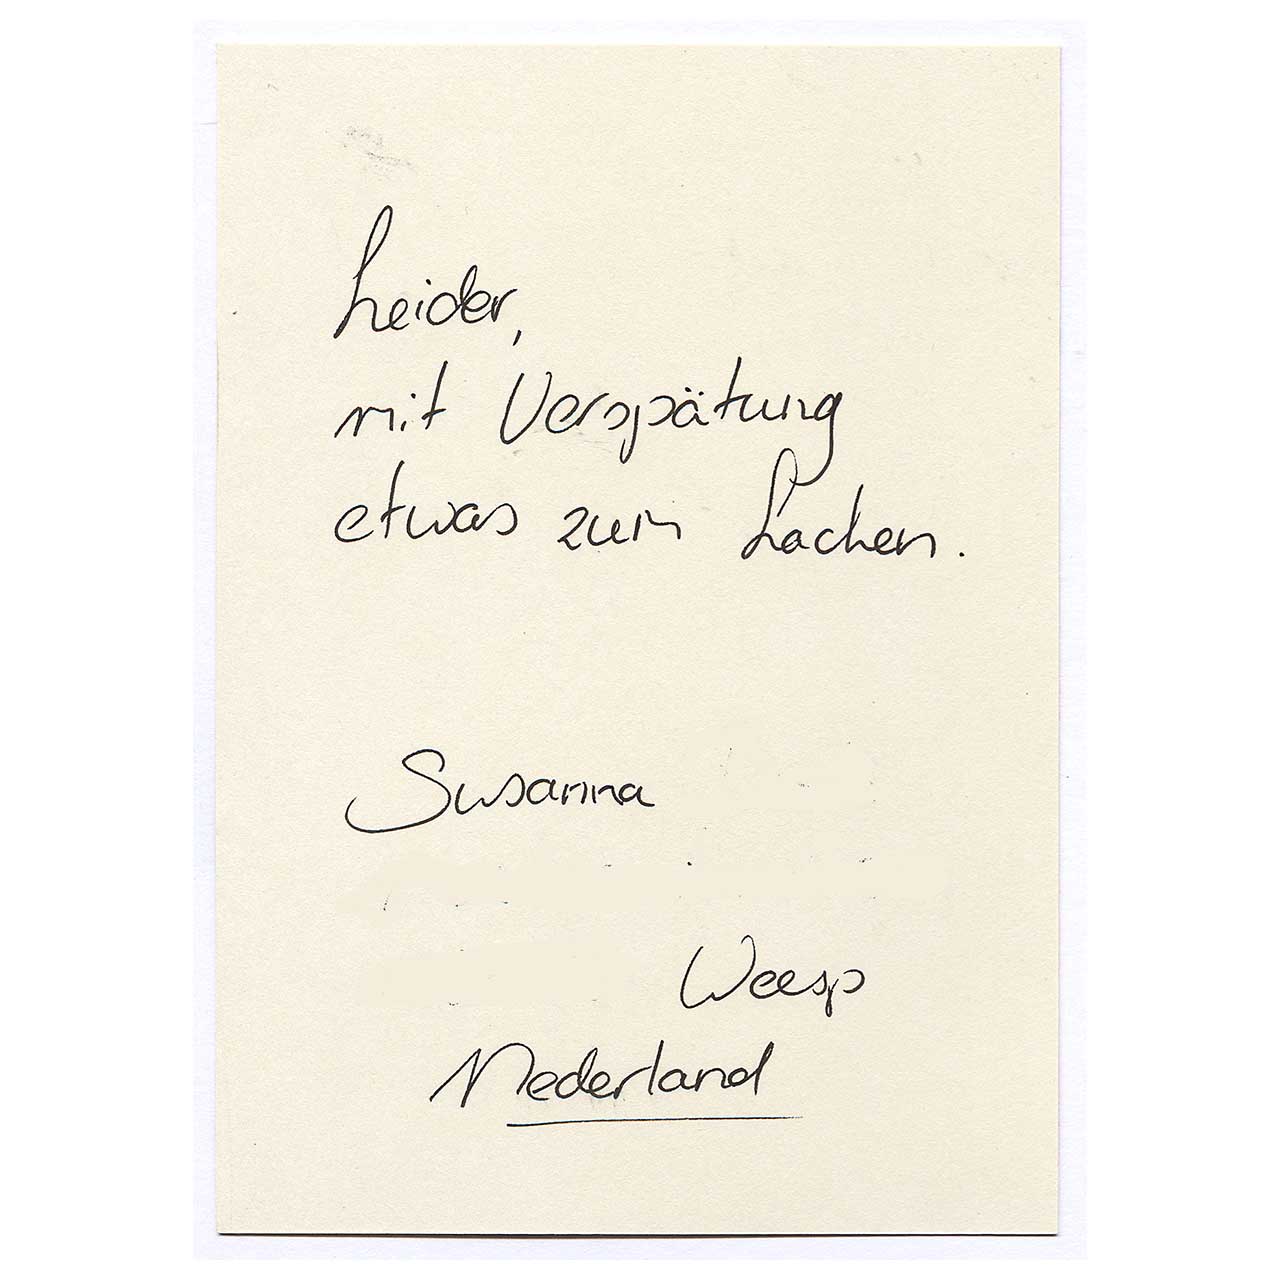 Leider,
mit Verspätung
etwas zum Lachen.
Susanna
Weesp
Nederland